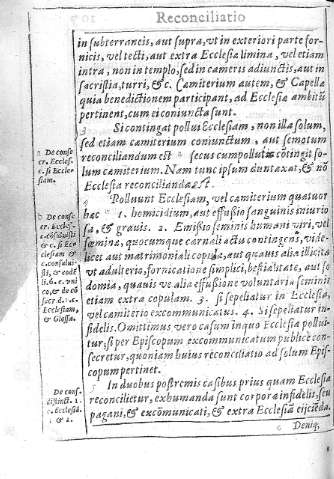 Reconciliatio
in subterraneis, aut supra, vt in exteriori parte for-
nicis, vel tecti, aut extra Ecclesiæ limina, vel etiam
intra, non in templo, sed in cameris adiunctis, aut in
sacristia, turri, &c. Cæmiterium autem, & Capellæ
quia benedictionem participant, ad Ecclesiæ ambitū
pertinent, cum ei coniuncta sunt.
Si contingat pollui Ecclesiam, non illa solum,
sed etiam cæmiterium coniunctum, aut semotum
reconciliandum est secus cum pollui cōtingit so-
lum cæmiterium. Nam tunc ipsum duntaxat, & nō
Ecclesia reconcilianda est.
Polluunt Ecclesiam, vel cæmiterium quatuor
hæc 1. homicidium, aut effusio sanguinis iniurio
sa, & grauis. 2. Emissio seminis humani viri, vel
fœminæ, quocumque carnali actu contingens, vide-
licet aut matrimoniali copula, aut quauis alia illicita
vt adulterio, fornicatione simplici, bestialitate, aut so
domia, quauis ve alia effusione voluntaria seminis
etiam extra copulam. 3. si sepeliatur in Ecclesia,
vel cæmiterio excommunicatus. 4. Si sepeliatur in-
fidelis. Omittimus vero casum in quo Ecclesia pollui
tur, si per Episcopum excommunicatum publicè con-
secretur, quoniam huius reconciliatio ad solum Epis-
copum pertinet.
In duobus postremis casibus prius quam Ecclesia
reconcilietur, exhumanda sunt corpora infidelis, seu
pagani, & excōmunicati, & extra Ecclesiā eijciēda.
Deniq;
De conse
cr. Ecclef.
c. si Eccle
siam.
De conse
cr. Eccles.
c. consuluisti
& c. si Ec
clesiam &
c. consulu-
isti, de
Ecclesiam,
& Glossa.
De cons.
distinct. 1.
c. Ecclesiā.
1. & 2.